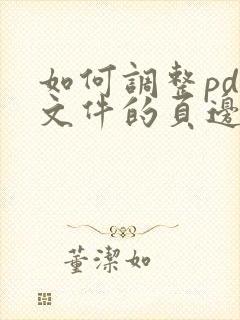 如何調整pd
文件的頁邊
董潔如